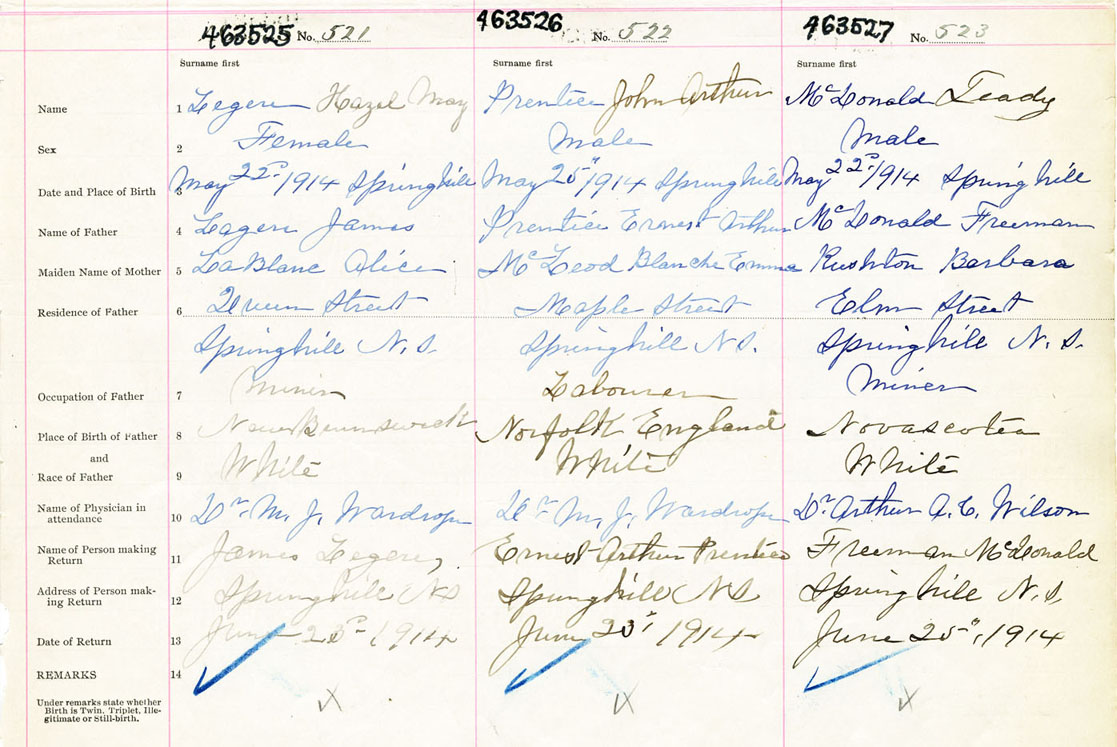 463525 No. 521 463526 No. 522 463527 No. 523
Surname first Surname first Surname first
Name 1 Legere Hazel May Prentice John Arthur McDonald Teady
Sex 2 Female Male Male
Date and Place of Birth 3 May 22nd/1914 Springhill May 25"/1914 Springhill May 22nd/1914 Springhill
Name of Father 4 Legere James Prentice Ernest Arthur McDonald Freeman
Maiden Name of Mother 5 LaBlanc Alice McLeod Blanche Emma Rushton Barbara
Residence of Father 6 Queen Street Maple Street Elm Street
Springhill N.S. Springhill N.S. Springhill N.S.
Occupation of Father 7 Miner Labourer Miner
Place of Birth of Father 8 New Brunswick Norfolk England Novascotea
and
Race of Father 9 White White White
Name of Physician in
attendance 10 Dr. M. J. Wardrope Dr. M. J. Wardrope Dr Arthur A. C. Wilson
Name of Person making
Return 11 James Legere, Ernest Arthur Prentice Freeman McDonald
Address of Person mak-
ing Return 12 Springhill NS Springhill NS Springhill N.S.
Date of Return 13 June 1914 June 1914 June 25", 1914
REMARKS 14
Under remarks state whether
Birth is Twin, Triplet, Ille-
gitimate or Still-birth.
X X X